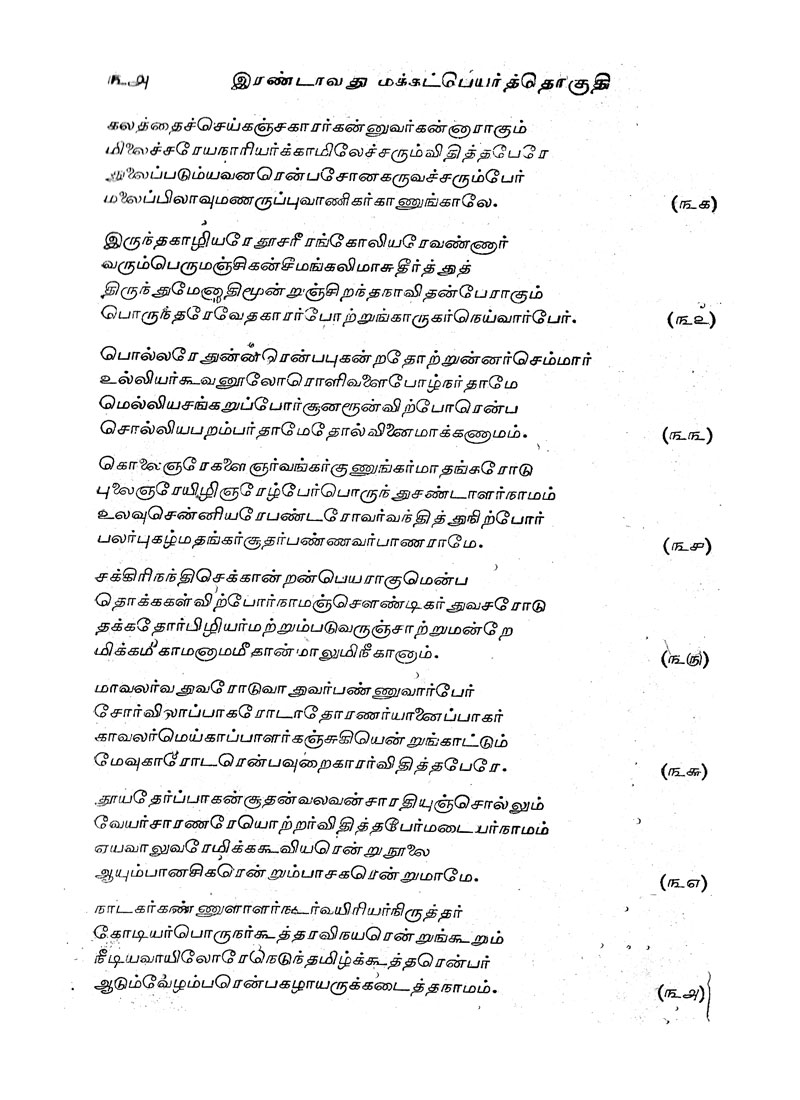 ௩௮ இரண்டாவது மக்கட்பெயர்த்தொகுதி
கலத்தைச்செய்கஞ்சகாரர்கன்னுவர்கன்னாராகும்
மிலைச்சரேயநாரியர்க்காமிலேச்சரும்விதித்தபேரே
துலைப்படும்யவனரென்பசோனகருவச்சரும்பேர்
மலைப்பிலாவுமணருப்புவாணிகர்காணுங்காலே. (௩௧)
இருந்தகாழியரேதூசரீரங்கோலியரேவண்ணார்
வரும்பெருமஞ்சிகன்சீமங்கலிமாசுதீர்த்துத்
திருந்துமேனாதிமூன்றுஞ்சிறந்தநாவிதன்பேராகும்
பொருந்தரேவேதகாரர்போற்றுங்காருகர்நெய்வார்பேர். (௩௨)
பொல்லரேதுன்னரென்பபுகன்றதோற்றுன்னர்செம்மார்
உல்லியர்கூவனூலோரொளிவளைபோழ்நர்தாமே
மெல்லியசங்கறுப்போர்சூனரூன்விற்போரென்ப
சொல்லியபறம்பர்தாமேதோல்வினைமாக்கணாமம். (௩௩)
கொலைஞரேகளைஞர்வங்கர்குணுங்கர்மாதங்கரோடு
புலைஞரேயிழிஞரேழ்பேர்பொருந்துசண்டாளர்நாமம்
உலவுசென்னியரேபண்டரோவர்வந்தித்துநிற்போர்
பலர்புகழ்மதங்கர்சூதர்பண்ணவர்பாணராமே. (௩௪)
சக்கிரிநந்திசெக்கான்றன்பெயராகுமென்ப
தொக்ககள்விற்போர்நாமஞ்சௌண்டிகர்துவசரோடு
தக்கதோர்பிழியர்மற்றும்படுவருஞ்சாற்றுமன்றே
மிக்கமீகாமனாமமீதான்மாலுமிநீகானும். (௩௫)
மாவலர்வதுவரோடுவாதுவர்பண்ணுவார்பேர்
சோர்விலாப்பாகரோடாதோரணர்யானைப்பாகர்
காவலர்மெய்காப்பாளர்கஞ்சுகியென்றுங்காட்டும்
மேவுகாரோடரென்பவுறைகாரர்விதித்தபேரே. (௩௬)
தூயதேர்ப்பாகன்சூதன்வலவன்சாரதியுஞ்சொல்லும்
வேயர்சாரணரேயொற்றர்விதித்தபேர்மடையர்நாமம்
ஏயவாலுவரேமிக்ககூவியரென்றுநூலை
ஆயும்பானசிகரென்றும்பாசகரென்றுமாமே. (௩௭)
நாடகர்கண்ணுளாளர்நடர்வயிரியர்நிருத்தர்
கோடியர்பொருநர்கூத்தரவிநயரென்றுங்கூறும்
நீடியவாயிலோரேநெடுந்தமிழ்க்கூத்தரென்பர்
ஆடும்வேழம்பரென்பகழாயருக்கடைத்தநாமம். (௩௮)